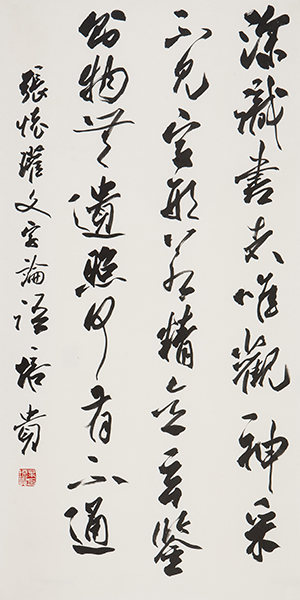 深識書者唯觀神采
不見字形若精意玄鑒
則物無遺照何有不通
張懷瓘文字論語培貴